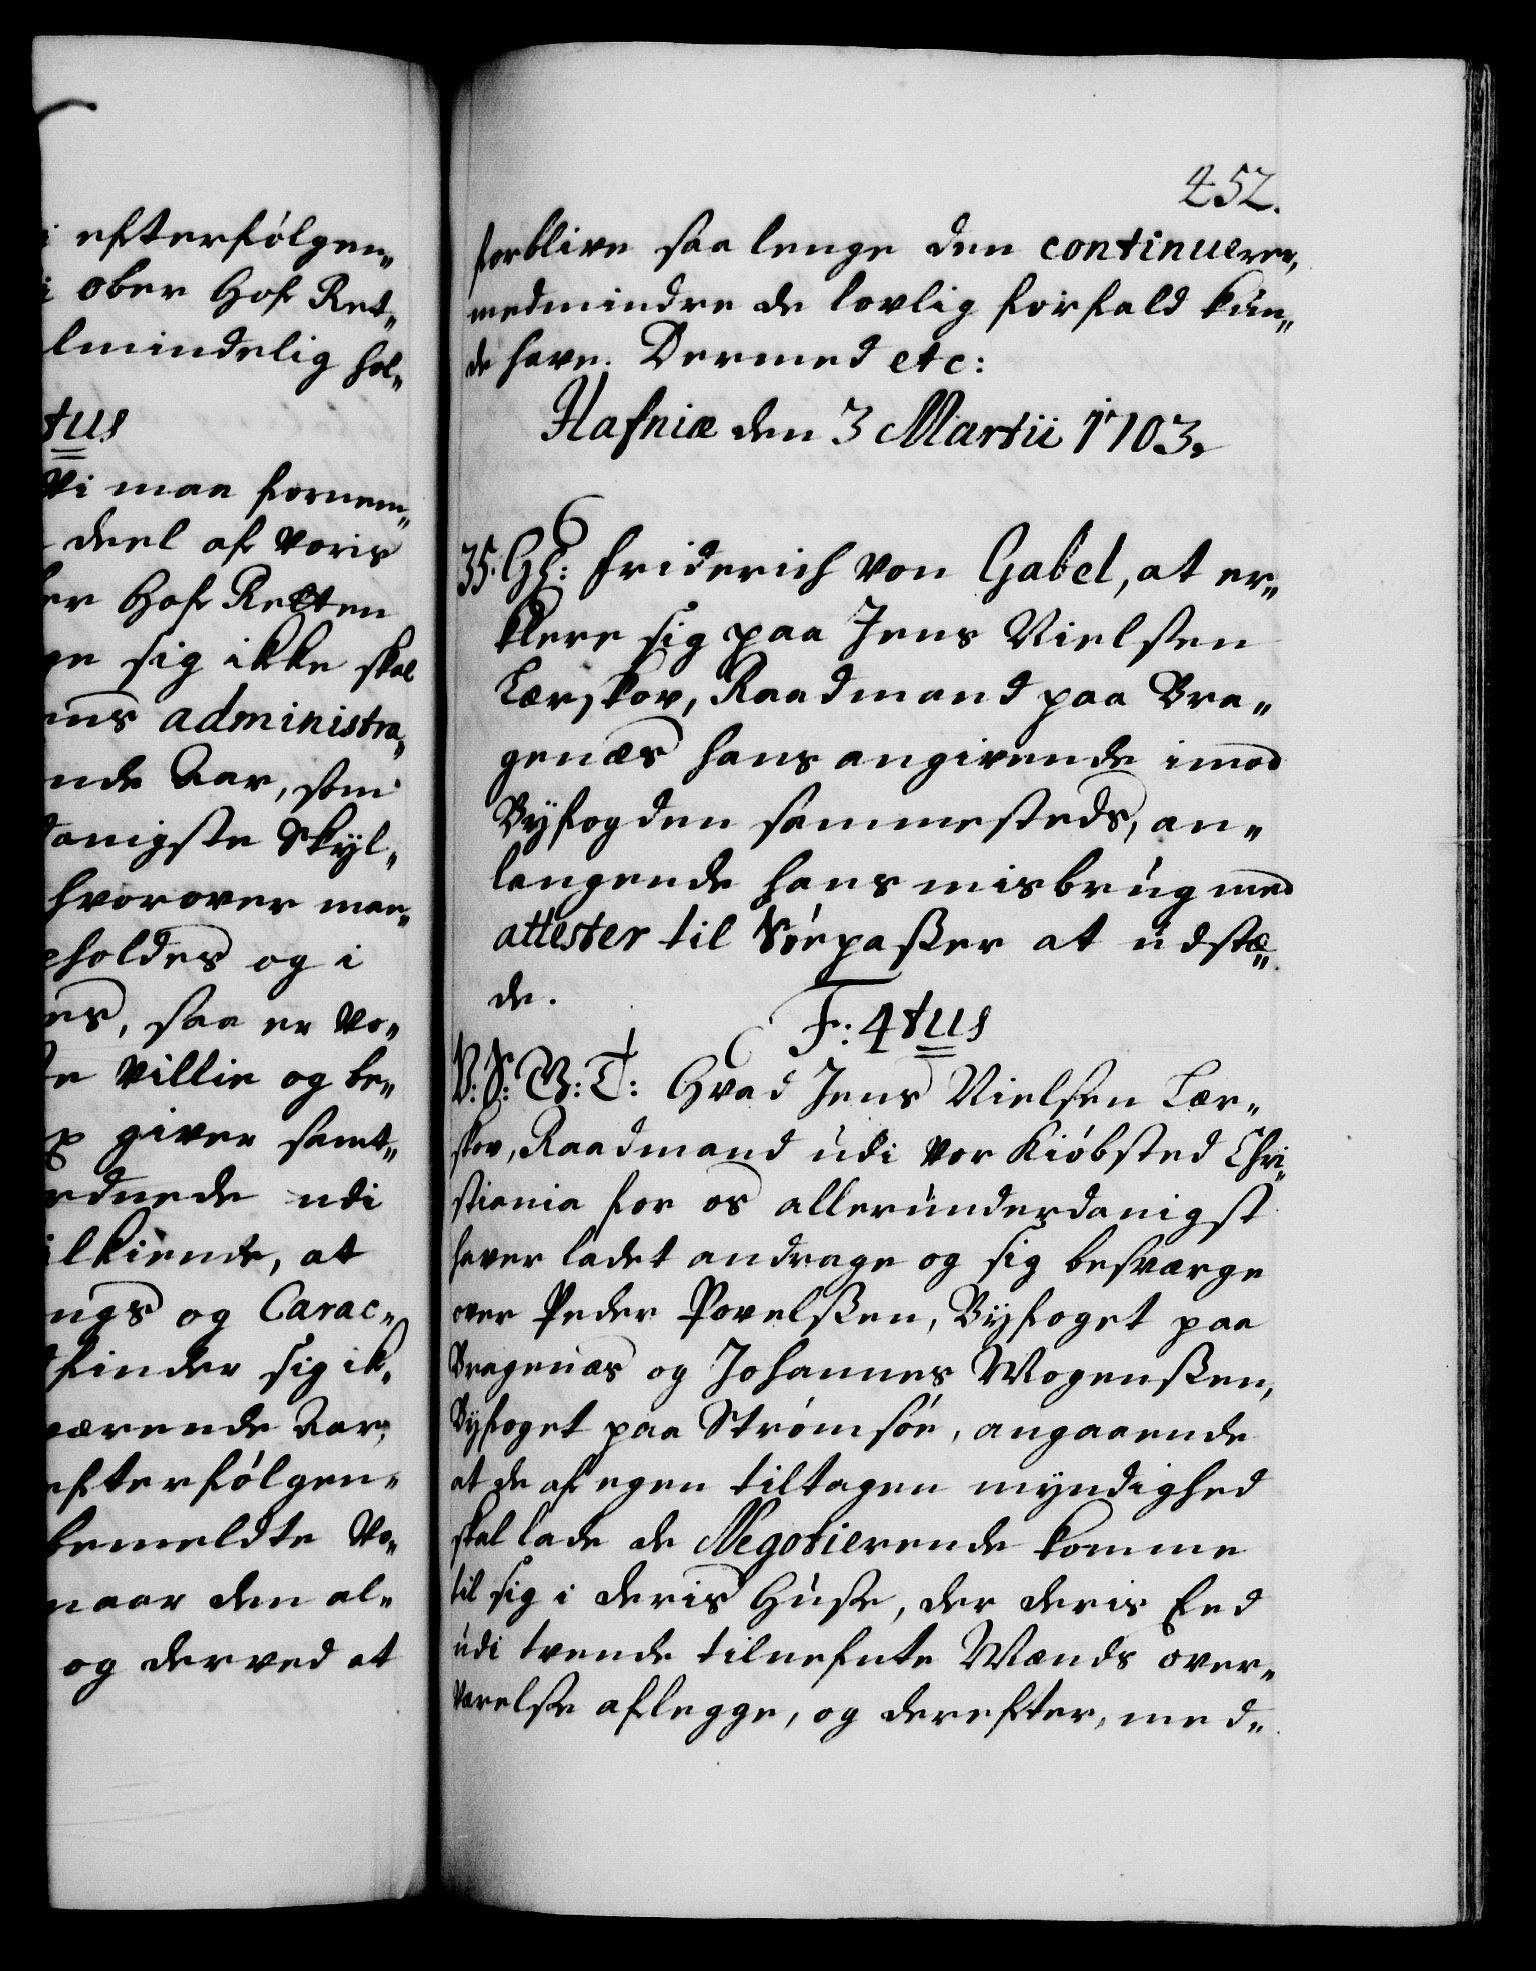 i efterfølgen„
i ober Hof Ret„
lmindelig hol„
tus
Vi maa fornem„
deel af voris
er Hof Retten
ge sig ikke skal
ens administra„
nde Aar, som
danigste Skyl„
hvorover man„
pholdes og i
es, saa er vo„
te villie og be„
giver samt„
rdnede udi
ilkiende, at
ngs og Carac„
finder sig ik„
værende Aar,
efterfølgen„
bemeldte Vo„
naar den al„
og derved at
452.
forblive saa lenge den continuerer,
medmindre de lovlig forfald kun„
de have. Dermed etc:
Hafniæ den 3 Martii 1703.
6
35. Gh: Friderich von Gabel, at er„
klere sig paa Jens Nielsen
Lærskov, Raadmand paa Bra„
genæs hans angivende imod
Byfogden sammesteds, an„
langende hans misbrug med
attester til Søepasser at udstæ„
de.
F: 4tus
V: S: G: T: Hvad Jens Nielsen Lær„
skov, Raadmand udi vor Kiøbsted Chri„
stiania for os allerunderdanigst
haver ladet andrage og sig besværge
over Peder Povelssen, Byfoget paa
Bragenæs og Johannes Mogenssen,
Byfoget paa Strømsøe, angaaende
at de af egen tiltagen myndighed
skal lade de Negotierende komme
til sig i deris Huse, der deris Eed
udi tvende tilnefnte Mænds over„
værelse aflegge, og derefter, med„